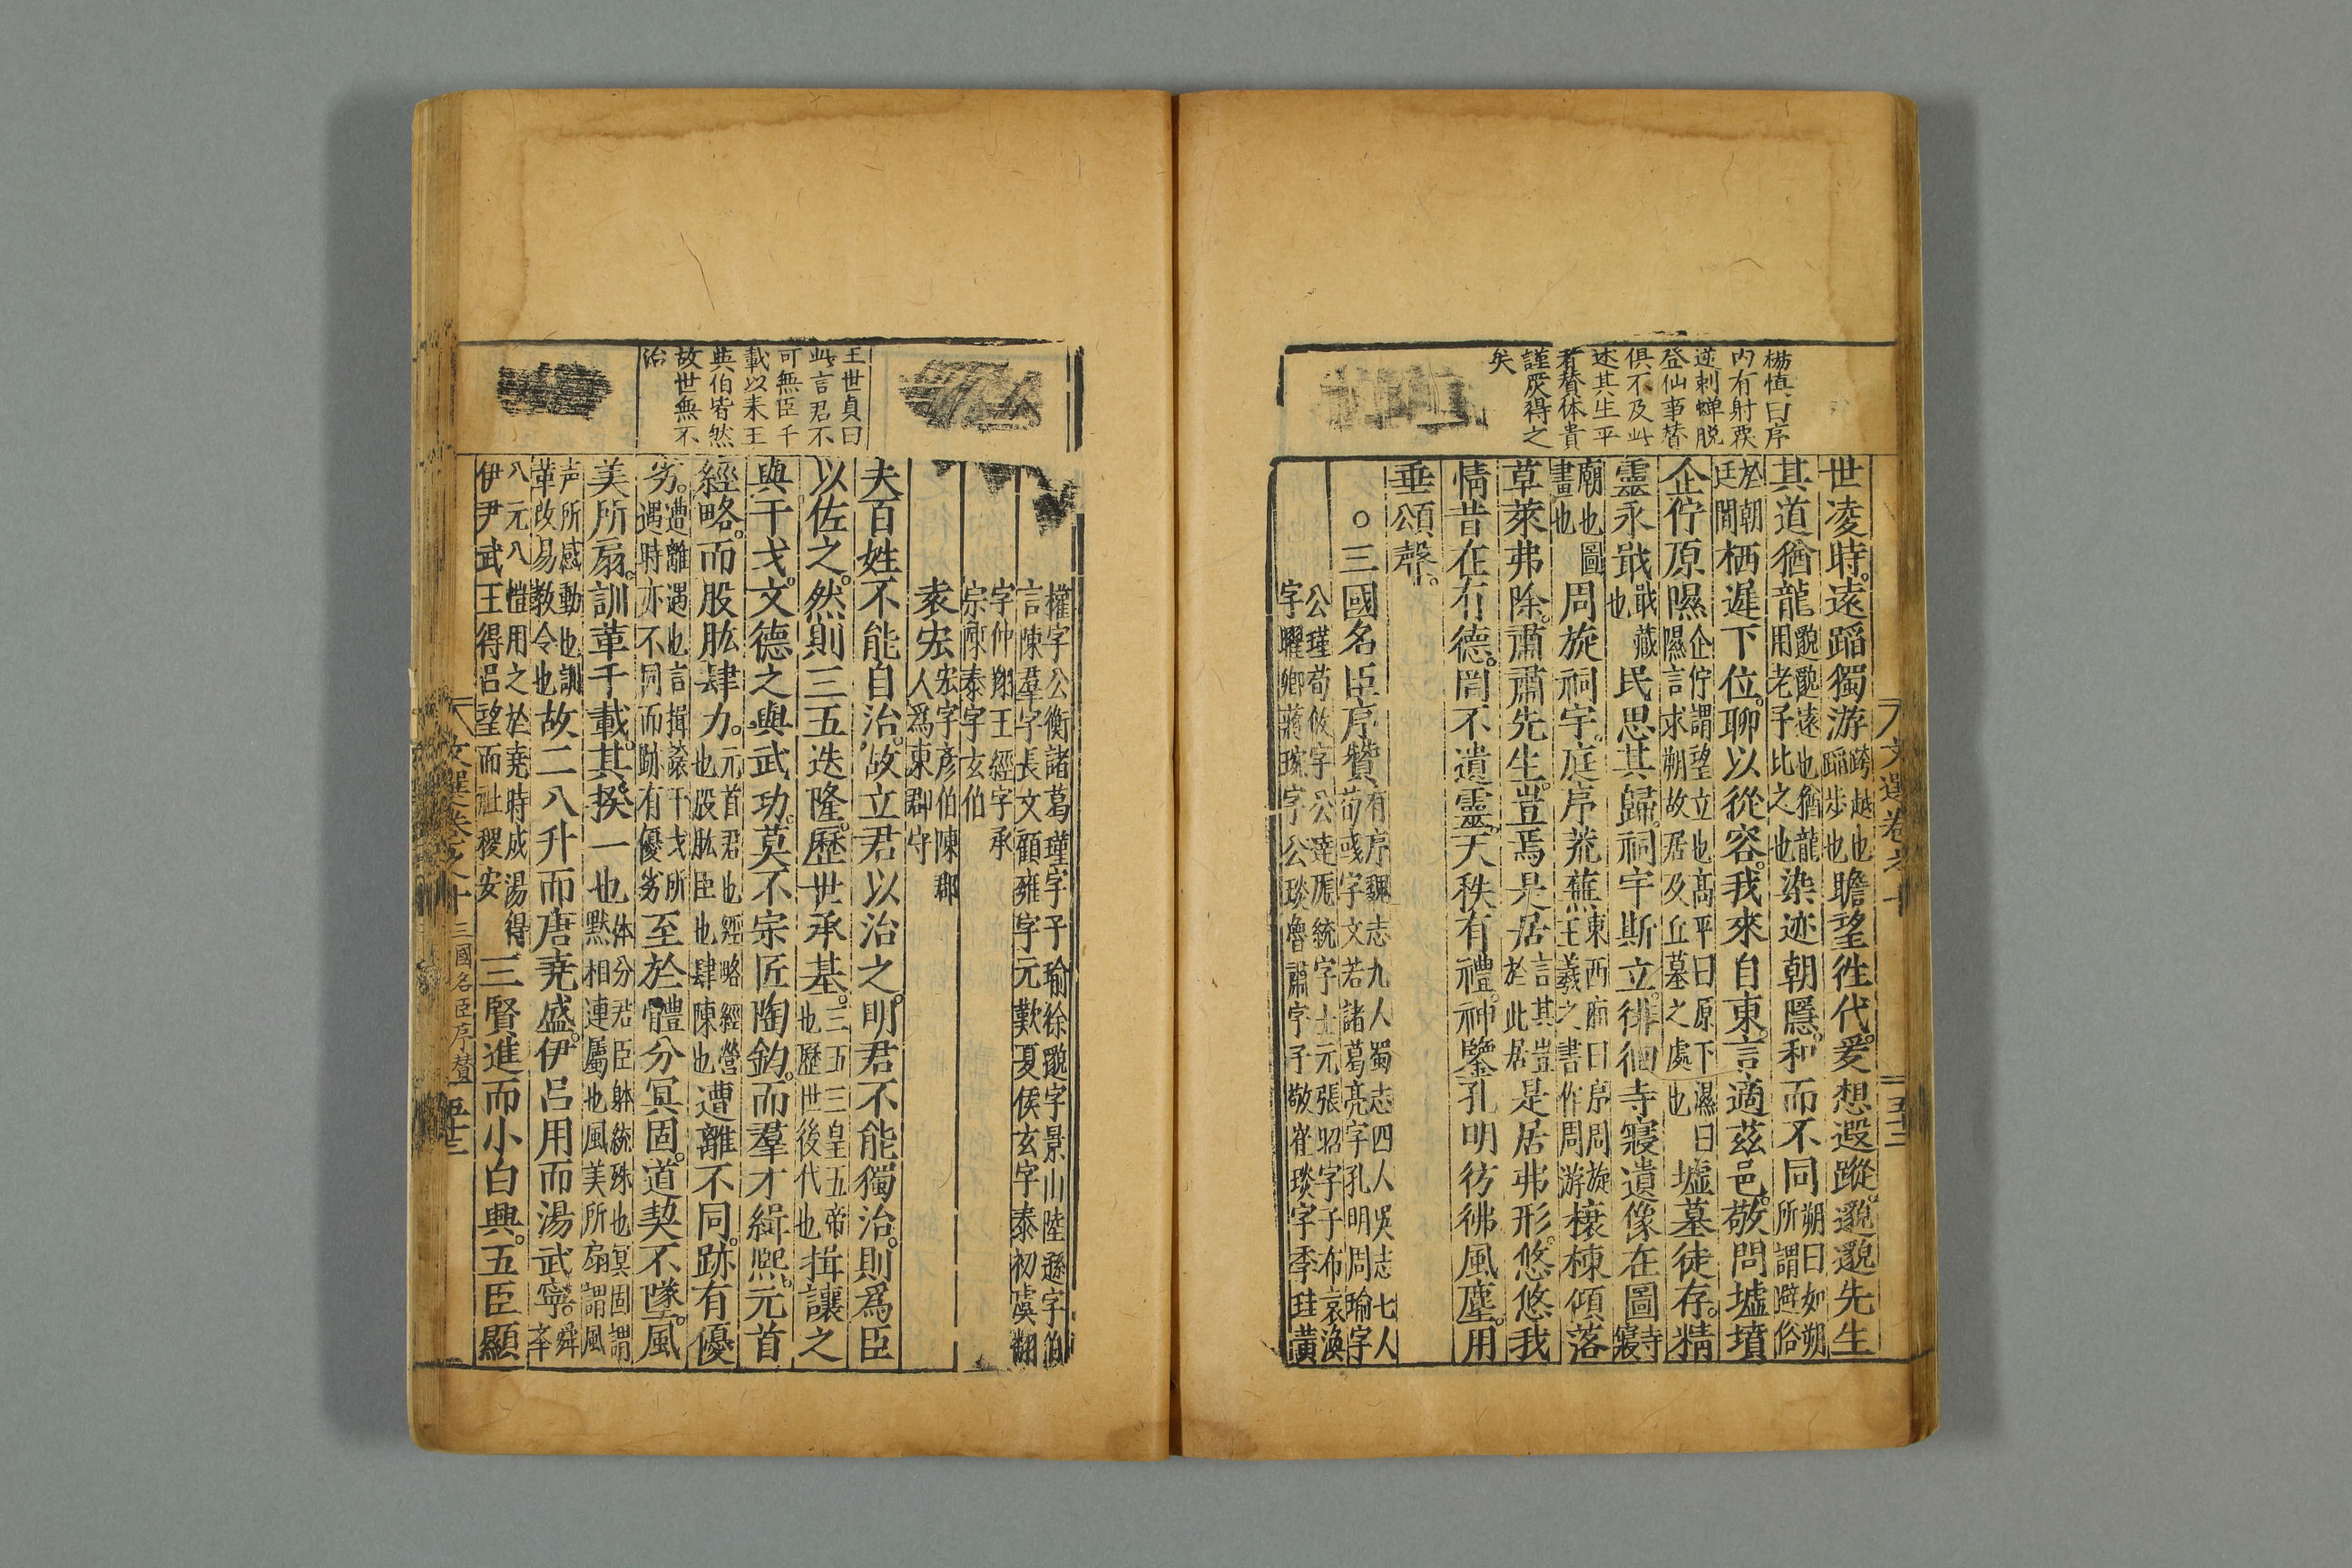 楊慎曰序
内有射覆
逆刺蟬脫
登仙事替
俱不及此
述其生平
者賛体貴
謹嚴得之
矣
世凌時。遠蹈獨游跨越也蹈步也瞻望徃代。爰想遐蹤。邈邈先生
其道猶龍邈邈遠也猶龍用老子比之也染迹朝隱。和而不同朔曰如朔所謂避俗
於朝廷間栖遲下位。聊以從容。我來自東。言適茲邑。敬問墟墳
企佇原隰企佇謂望立也高平曰原下濕曰隰言求朔故居及丘墓之處也墟墓徒存。精
靈永戢戢藏也民思其歸。祠宇斯立。徘徊寺寢遺像在圖寺寢
廟也圖畫也周旋祠宇。庭序荒蕪東西廂曰序周旋王羲之書作周游榱棟傾落
草萊弗除。肅肅先生。豈焉是居言其豈於此居是居弗形。悠悠我
情昔在有德。罔不遺靈。天秩有禮。神鑒孔明彷彿風塵。用
垂頌聲。
○三國名臣序贊有序魏志九人蜀志四人吳志七人荀彧字文若諸葛亮字孔明周瑜字
公瑾荀攸字公達龐統字士元張昭字子布袁渙字曜卿蔣琬字公琰魯肅字子敬崔琰字季珪黃
文選卷之十
五十三
權字公衡諸葛瑾字子瑜徐邈字景山陸遜字伯言陳羣字長文顧雍字元歎夏侯玄字泰初虞翻
字仲翔王經字承宗陳泰字玄伯
袁宏宏字彥伯陳郡人爲東郡守
夫百姓不能自治。故立君以治之。明君不能獨治。則爲臣
以佐之。然則三五迭隆。歷世承基。三五三皇五帝也歷世後代也揖讓之
與干戈。文德之與武功。莫不宗匠陶鈞。而羣才緝熙。元首
經略。而股肱肆力。元首君也經略經營也股肱臣也肆陳也遭離不同。跡有優
劣。遭離遇也言揖讓干戈所遇時亦不同而跡有優劣至於體分冥固。道契不墜。風
美所扇。訓革千載。其揆一也体分君臣躰統殊也冥固謂默相連屬也風美所扇謂風
声所感動也訓革改易教令也故二八升而唐堯盛。伊呂用而湯武寧。舜舉
八元八愷用之於堯時成湯得伊尹武王得呂望而社稷安三賢進而小白興。五臣顯
王世貞曰
此言君不
可無臣千
載以來王
與伯皆然
故世無不
治
文選卷之十
三國名臣序贊
五十三